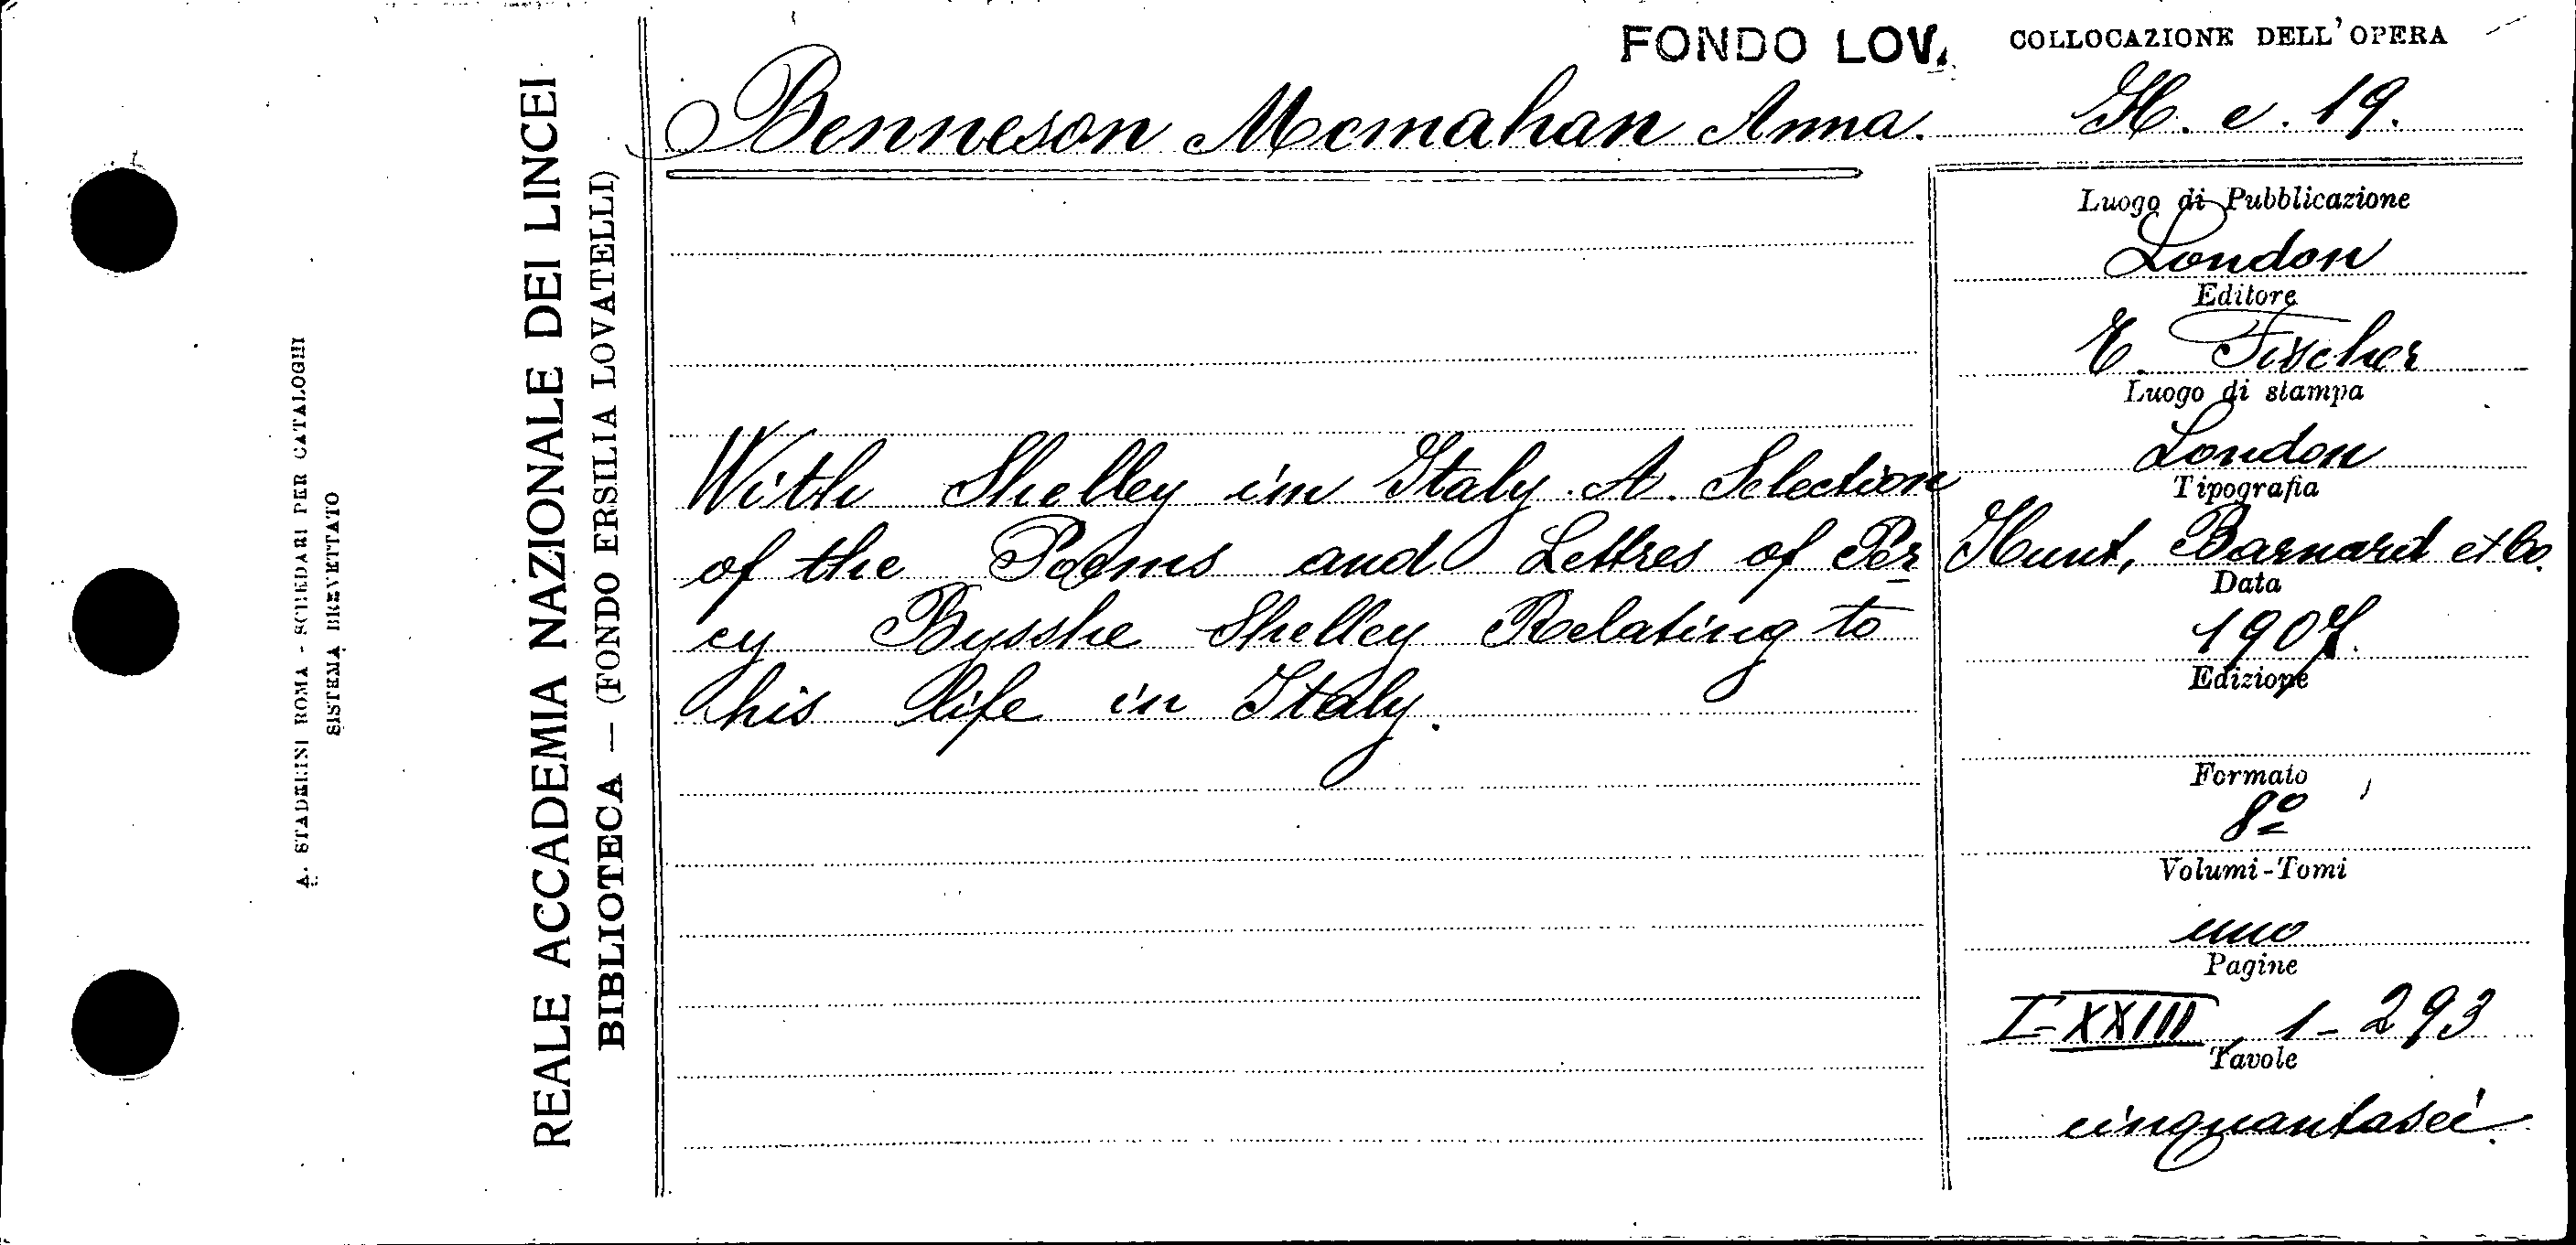 FONDO LOV.
COLLOCAZIONE DELL'OPERA
Benneson Mcmahan Anna.
H. c. 19.
With Shelley in Italy. A. Selection
of the Poems and Lettres of Per
cy Bysshe Shelley Relating to
his life in Italy.
Luogo di Pubblicazione
London
Editore
E. Fischer
Luogo di stampa
London
Tipografia
Hunt, Barnard et Co.
Data
1907.
Edizione
Formato
8º
Volumi-Tomi
uno
Pagine
I-XXIII, 1-293
Tavole
cinquantasei.
REALE ACCADEMIA NAZIONALE DEI LINCEI
BIBLIOTECA — (FONDO ERSILIA LOVATELLI)
A. STADERINI ROMA - SCHEDARI PER CATALOGHI
SISTEMA BREVETTATO